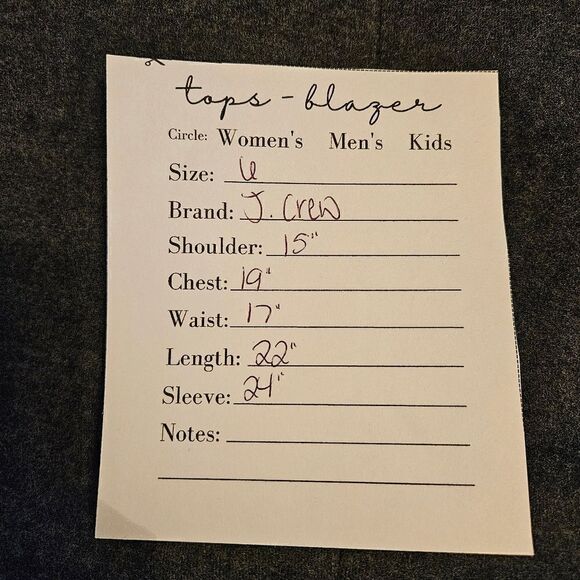 tops - blazer
Circle: Women's Men's Kids
Size: 6
Brand: J. Crew
Shoulder: 15"
Chest: 19"
Waist: 17"
Length: 22"
Sleeve: 24"
Notes: